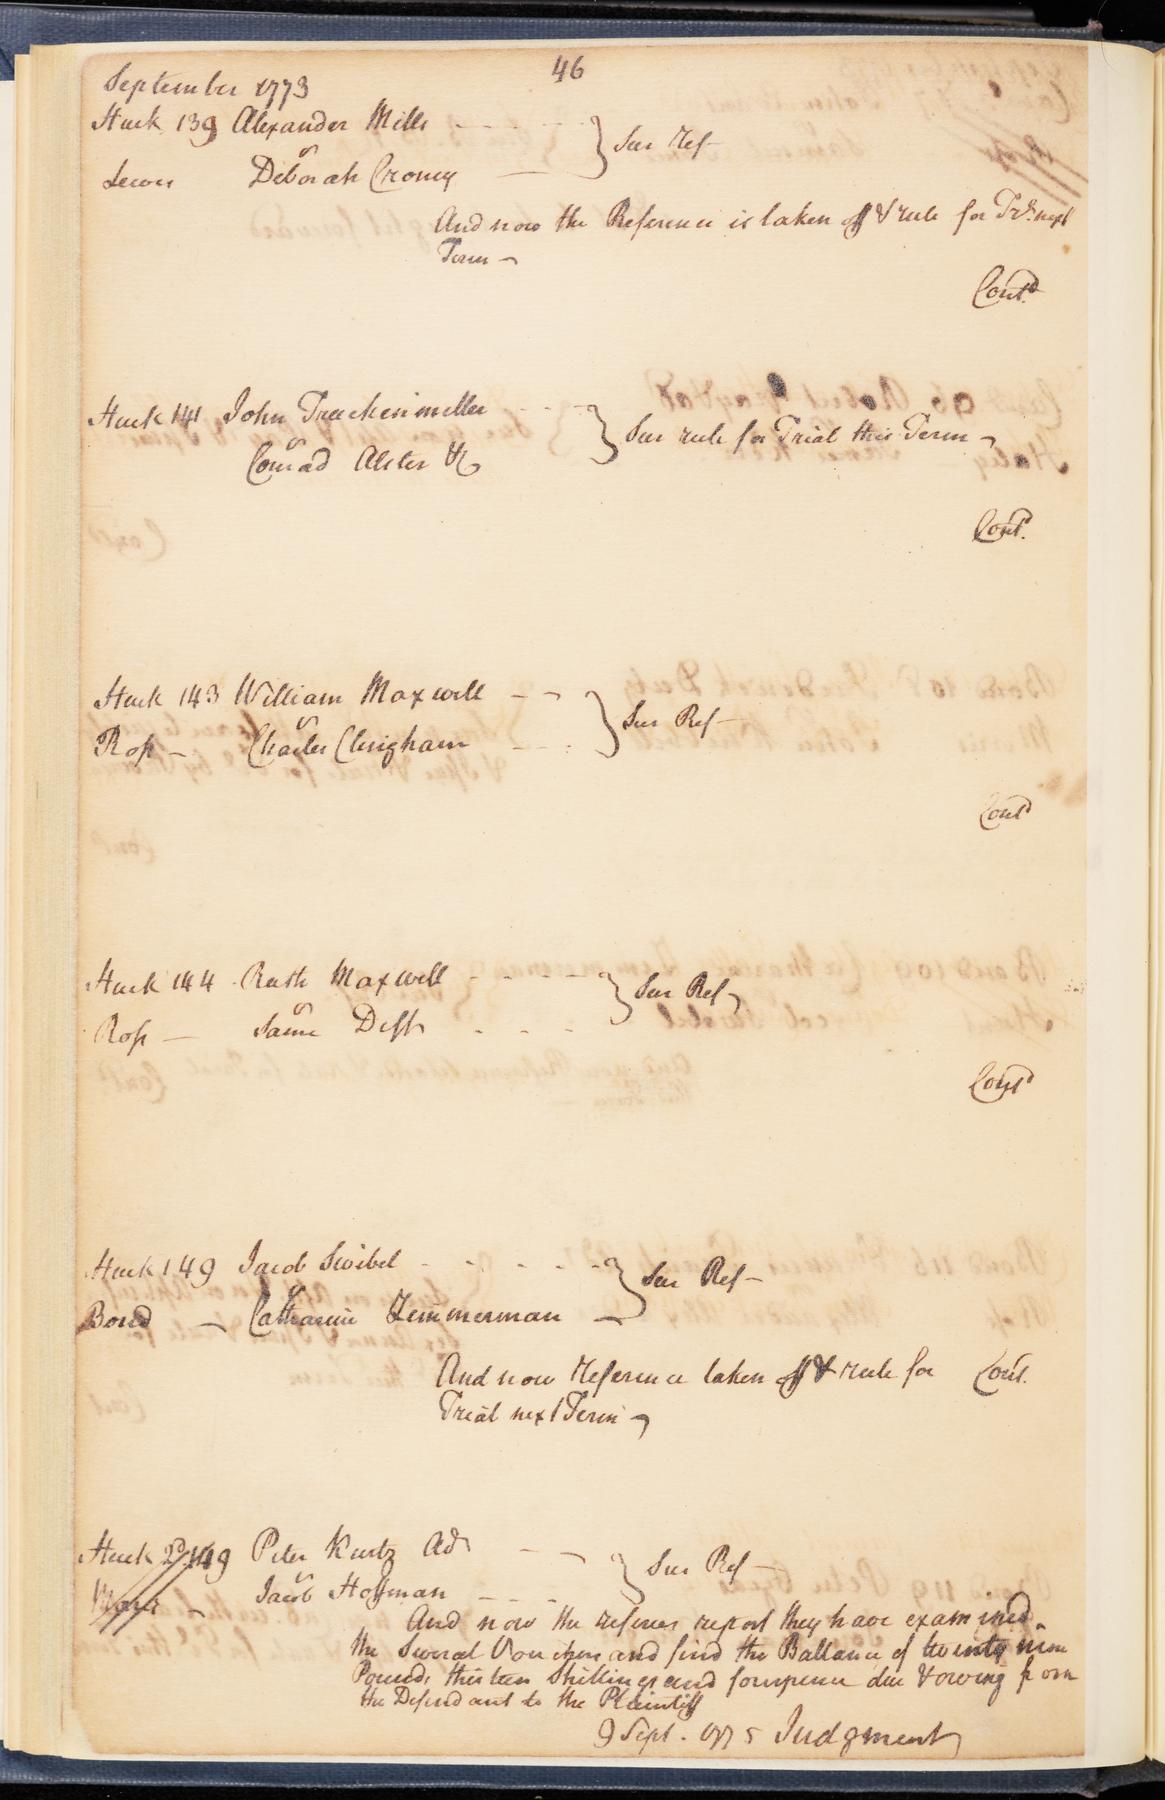 46
September 1773
Huck 139 Alexander Mills
vs
Lewis Deborah Cromey
Sur Ref
And now the Reference is taken off & rule for Trl. next
Term
Contd
Huck 141 John Truckenmiller
vs
Conrad Alster &c
Sur rule for Trial this Term
Contd.
Huck 143 William Maxwell
vs
Ross Charles Clingham
Sur Ref
Contd
Huck 144 Ruth Maxwell
vs
Ross Same Deft
Sur Ref
Contd
Huck 149 Jacob Swibel
vs
Bond Catharine Zemmerman
Sur Ref
And now Reference taken off & rule for Cont.
Trial next Term
Huck 149 Peter Kurtz Adr
vs
Jacob Hoffman
Sur Ref
And now the referees report they have examined
the several Vouchers and find the Ballance of twenty nine
Pounds thirteen Shillings and fourpence due & owing from
the Defendant to the Plaintiff
9 Sept. 1775 Judgment